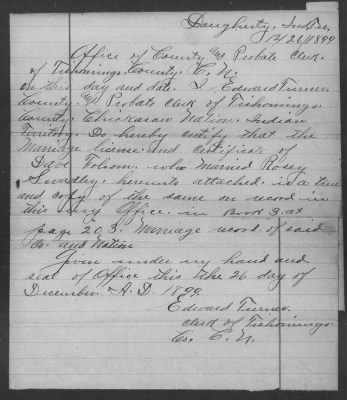 Daugherty, Ind Ter,
12/26/1899
Office of County & Probate Clerk
of Tishomingo County C. N.
on this day and date. I Edward Turner
County & Probate Clerk of Tishomingo
County, Chickasaw Nation, Indian
Territory. Do hereby certify that the
Marriage license and certificate of
Dave Folsom who married Rosey
Swadley hereunto attached is a true
and copy of the same on record in
this my Office. in Book 3. at
page 203. Marriage record of said
Co. and Nation
Given under my hand and
seal of Office this the 26 day of
December A. D. 1899.
Edward Turner.
Clerk of Tishomingo
Co. C. N.